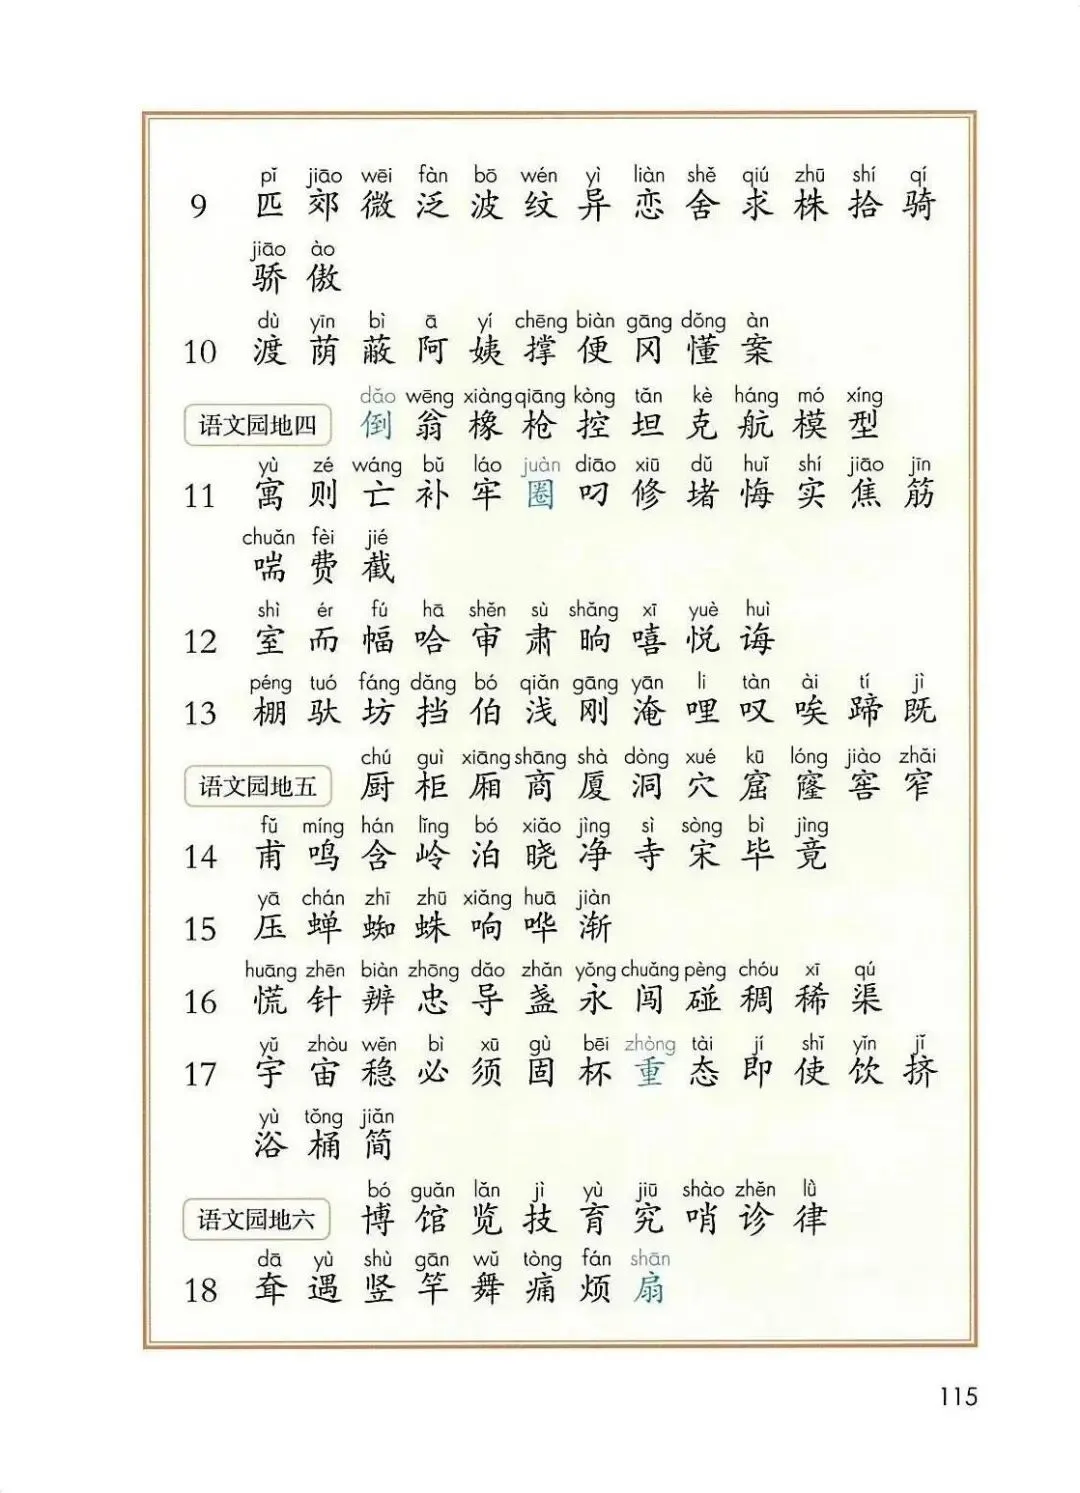 pǐ jiāo wēi fàn bō wén yì liàn shě qiú zhū shí qí
9 匹 郊 微 泛 波 纹 异 恋 舍 求 株 拾 骑
jiāo ào
骄 傲
dù yīn bì ā yí chēng biàn gāng dǒng àn
10 渡 荫 蔽 阿 姨 撑 便 冈 懂 案
dǎo wēng xiàng qiāng kòng tǎn kè háng mó xíng
语文园地四 倒 翁 橡 枪 控 坦 克 航 模 型
yù zé wáng bǔ láo juàn diāo xiū dǔ huǐ shí jiāo jīn
11 寓 则 亡 补 牢 圈 叼 修 堵 悔 实 焦 筋
chuǎn fèi jié
喘 费 截
shì ér fú hā shěn sù shǎng xī yuè huì
12 室 而 幅 哈 审 肃 晌 嘻 悦 诲
péng tuó fáng dǎng bó qiǎn gāng yān li tàn ài tí jì
13 棚 驮 坊 挡 伯 浅 刚 淹 哩 叹 唉 蹄 既
chú guì xiāng shāng shà dòng xué kū lóng jiào zhǎi
语文园地五 厨 柜 厢 商 厦 洞 穴 窟 窿 窖 窄
fǔ míng hán lǐng bó xiǎo jìng sì sòng bì jìng
14 甫 鸣 含 岭 泊 晓 净 寺 宋 毕 竟
yā chán zhī zhū xiǎng huā jiàn
15 压 蝉 蜘 蛛 响 哗 渐
huāng zhēn biàn zhōng dǎo zhǎn yǒng chuǎng pèng chóu xī qú
16 慌 针 辨 忠 导 盏 永 闯 碰 稠 稀 渠
yǔ zhòu wěn bì xū gù bēi zhòng tài jí shǐ yǐn jǐ
17 宇 宙 稳 必 须 固 杯 重 态 即 使 饮 挤
yù tǒng jiǎn
浴 桶 简
bó guǎn lǎn jì yù jiū shào zhěn lǜ
语文园地六 博 馆 览 技 育 究 哨 诊 律
dā yù shù gān wǔ tòng fán shān
18 耷 遇 竖 竿 舞 痛 烦 扇
115